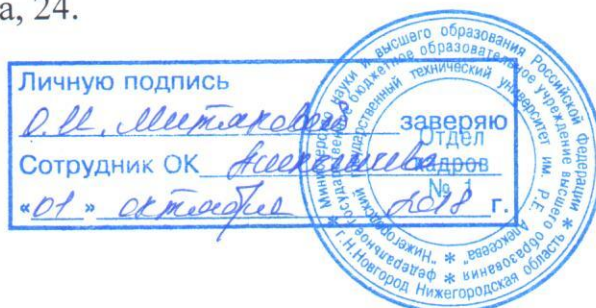 а, 24.
Личную подпись
О.И. Митяковой заверяю
Сотрудник ОК
«01» октября 2018 г.
Отдел
кадров
№ 1
Министерство науки и высшего образования Российской Федерации *
федеральное государственное бюджетное образовательное учреждение высшего образования *
"Нижегородский государственный технический университет им. Р.Е. Алексеева" *
г.Н.Новгород Нижегородская область *